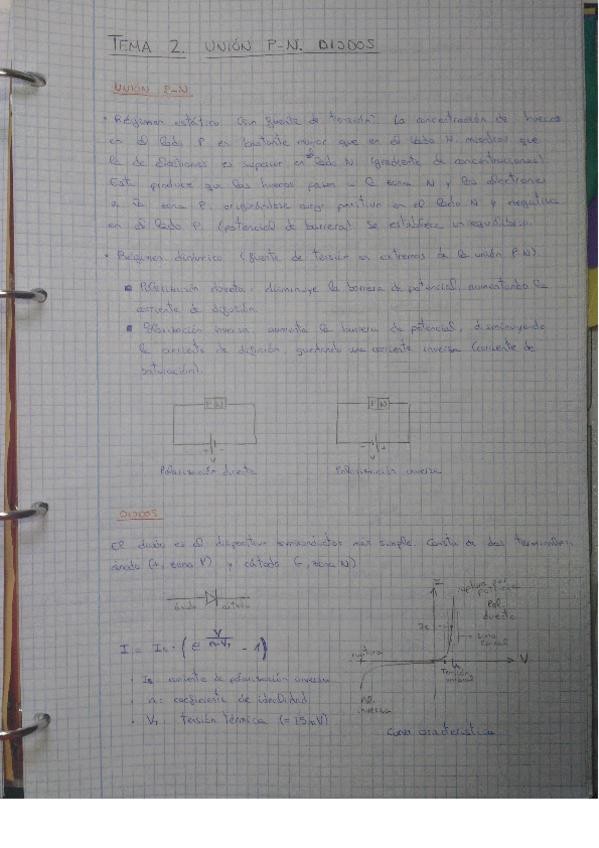 TEMA 2. UNIÓN P-N. DIODOS
UNIÓN P-N
• Régimen estático (sin fuente de tensión). La concentración de huecos
en el lado P es bastante mayor que en el lado N, mientras que
la de electrones es superior en el lado N (gradiente de concentraciones).
Esto produce que los huecos pasen a la zona N y los electrones
a la zona P, originándose carga positiva en el lado N y negativa
en el lado P. (potencial de barrera). Se establece un equilibrio.
• Régimen dinámico (fuente de tensión en extremos de la unión P-N)
Polarización directa: disminuye la barrera de potencial, aumentando la
corriente de difusión.
Polarización inversa: aumenta la barrera de potencial, disminuyendo
la corriente de difusión, quedando una corriente inversa (corriente de
saturación).
P N
P N
V
V
Polarización directa
Polarización inversa
DIODOS
El diodo es el dispositivo semiconductor más simple. Consta de dos terminales:
ánodo (+, zona P) y cátodo (-, zona N)
ánodo cátodo
I = Is · (e^(V/(n·VT)) - 1)
• Is: corriente de polarización inversa
• n: coeficiente de idealidad
• VT: tensión térmica (= 25mV)
I
ruptura por
Pol.
directa
zona
ruptura
V
Tensión
umbral
Pol.
inversa
Curva característica